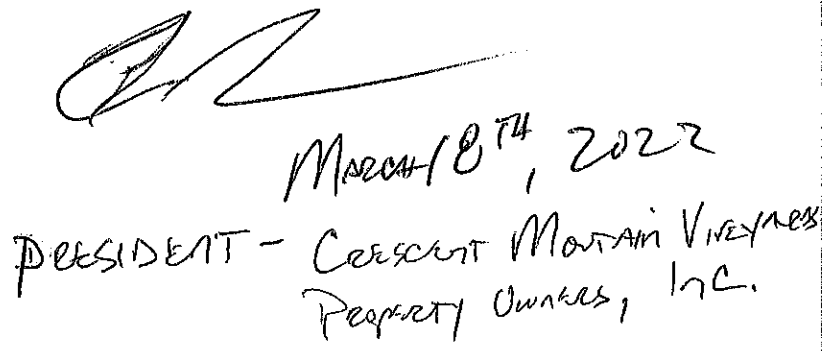 MARCH 18TH, 2022
PRESIDENT - CRESCENT MOUNTAIN VINEYARDS
PROPERTY OWNERS, INC.